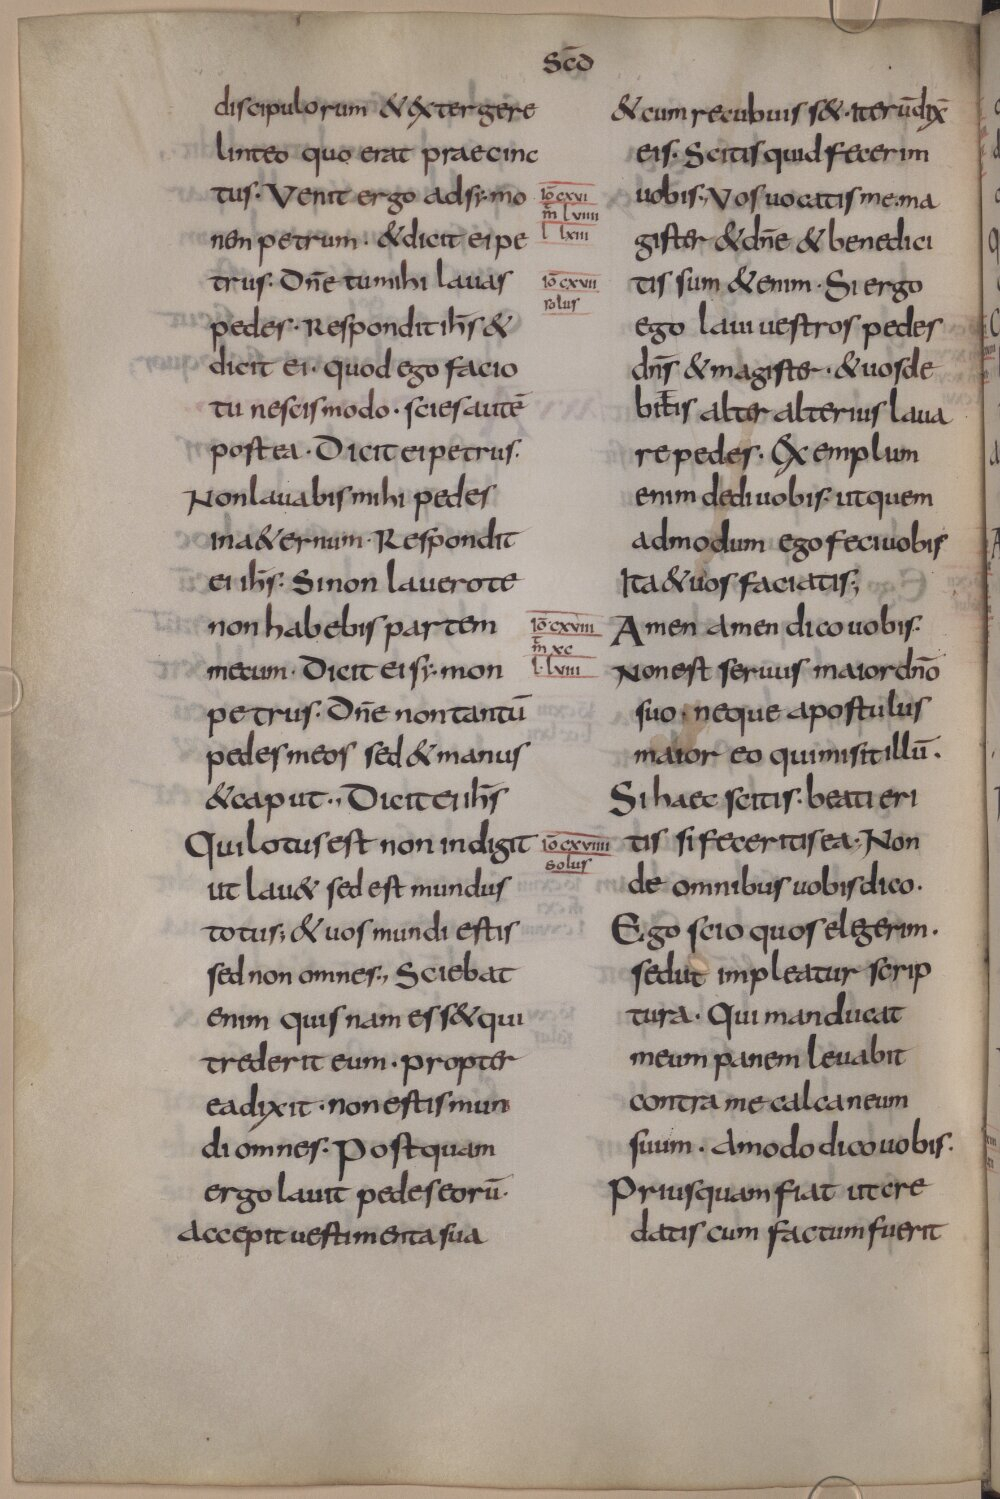 Scd̄
discipulorum & extergere
linteo quo erat praecinc
tus· Venit ergo ad sy·mo
nem petrum· & dicit ei pe
trus· Dn̄e tu mihi lauas
pedes· Respondit ih̄s &
dicit ei· quod ego facio
tu nescis modo· scies autē
postea· Dicit ei petrus·
Non lauabis mihi pedes
in a&ernum· Respondit
ei ih̄s· Si non lauero te
non habebis partem
mecum· Dicit ei sy·mon
petrus· Dn̄e non tantū
pedes meos sed & manus
& caput·, Dicit ei ih̄s
Qui lotus est non indigit
ut lau& sed est mundus
totus; & uos mundi estis
sed non omnes·, Sciebat
enim quisnam ess& qui
trederit eum· propter
ea dixit· non estis mun
di omnes· Postquam
ergo lauit pedes eorū·
accepit uestimenta sua
iō cxvi
m̄ lviiii
l lxiii
iō cxvii
solus
iō cxviii
m̄ xc
l· lviii
iō cxviiii
solus
& cum recubuiss&· iterū dix̄
eis· Scitis quid fecerim
uobis·, Vos uocatis me· ma
gister & dn̄e & benedici
tis sum &enim· Si ergo
ego laui uestros pedes
dn̄s & magister· & uos de
bitis alter alterius laua
re pedes· Exemplum
enim dedi uobis· ut quem
admodum ego feci uobis
Ita & uos faciatis;
Amen amen dico uobis·
Non est seruus maior dn̄o
suo· neque apostulus
maior eo qui misit illū·
Si haec scitis· beati eri
tis si feceritis ea· Non
de omnibus uobis dico·
Ego scio quos elegerim·
sed ut impleatur scrip
tura· Qui manducat
meum panem leuabit
contra me calcaneum
suum· amodo dico uobis·
Priusquam fiat ut cre
datis cum factum fuerit